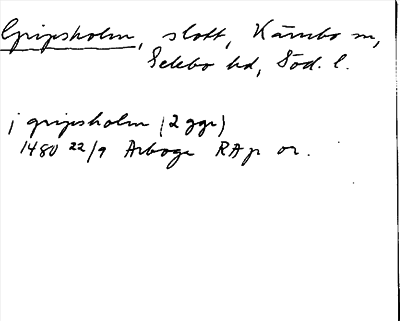 Gripsholm, slott, Kärnbo sn,
Selebo hd, Söd. l.
j gripsholm (2 ggr)
1480 22/9 Arboga RAp or.